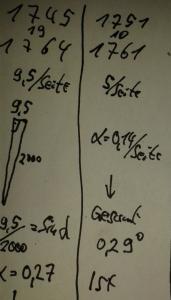 1745
19
1764
9,5/Seite
9,5
2000
9,5/2000 = Sin α
α = 0,27
1751
10
1761
5/Seite
α = 0,14/Seite
↓
Gesamt
0,29°
Ist